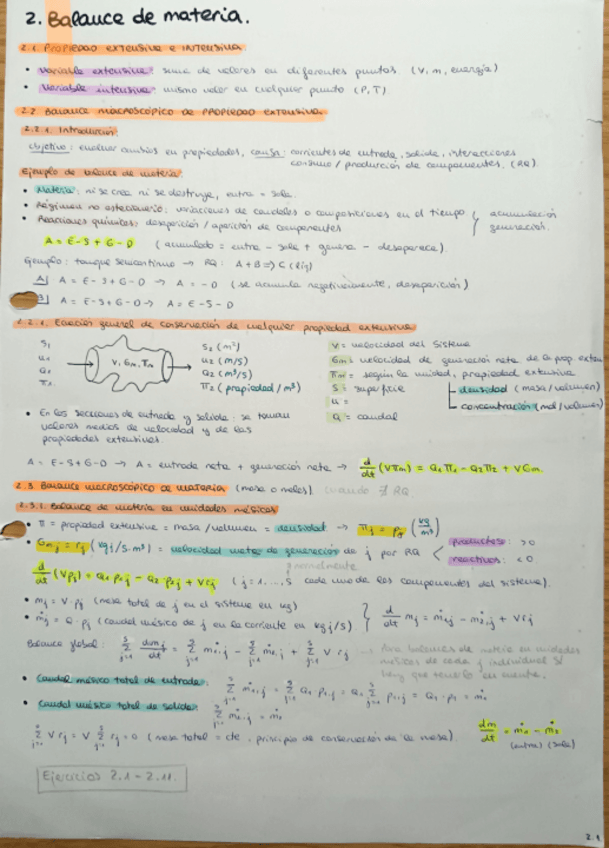 2. Balance de materia.
2.1. Propiedad extensiva e intensiva
• Variable extensiva: suma de valores en diferentes puntos (V, m, energía)
• Variable intensiva: mismo valor en cualquier punto (P, T)
2.2. Balance macroscópico de propiedad extensiva.
2.2.1. Introducción.
Objetivo: evaluar cambios en propiedades, causa: corrientes de entrada, salida, interacciones
consumo / producción de componentes, (RQ).
Ejemplo de balance de materia:
• Materia: ni se crea ni se destruye, entra = sale.
• Régimen no estacionario: variaciones de caudales o composiciones en el tiempo } acumulación
• Reacciones químicas: desaparición / aparición de componentes } generación.
A = E - S + G - D (acumulado = entra - sale + genera - desaparece).
Ejemplo: tanque semicontinuo → RQ: A + B => C (liq)
A) A = E - S + G - D → A = - D (se acumula negativamente, desaparición)
B) A = E - S + G - D → A = E - S - D
2.2.2. Ecuación general de conservación de cualquier propiedad extensiva
S1 S2 (m²) V = velocidad del sistema
u1 V, Gm, πm u2 (m/s) Gm = velocidad de generación neta de la prop. exten
Q1 Q2 (m³/s) πm = según la unidad, propiedad extensiva
π1 π2 (propiedad/m³) S = superficie densidad (masa/volumen)
u = concentración (mol/volumen)
Q = caudal
• En las secciones de entrada y salida se toman
valores medios de velocidad y de las
propiedades extensivas.
A = E - S + G - D → A = entrada neta + generación neta → d/dt (Vπm) = Q1π1 - Q2π2 + VGm.
2.3. Balance macroscópico de materia (masa o moles). cuando ∄ RQ
2.3.1. Balance de materia en unidades másicas
• π = propiedad extensiva = masa/volumen = densidad → πj = ρj (kg/m³)
• Gm,j = rj (kgj/s·m³) = velocidad neta de generación de j por RQ < productos: >0
reactivos: <0
normalmente
d/dt (Vρj) = Q1 ρ1,j - Q2 ρ2,j + Vrj (j = 1, ..., S cada uno de los componentes del sistema).
• mj = V·ρj (masa total de j en el sistema en kg)
• ṁj = Q·ρj (caudal másico de j en la corriente en kg j/s) } d/dt mj = ṁ1,j - ṁ2,j + Vrj
Balance global: Σ dmj/dt = Σ ṁ1,j - Σ ṁ2,j + Σ V rj
Para balances de materia en unidades
másicas de cada j individual SÍ
hay que tenerlo en cuenta.
• Caudal másico total de entrada: Σ ṁ1,j = Σ Q1 ρ1,j = Q1 Σ ρ1,j = Q1·ρ1 = ṁ1
• Caudal másico total de salida:
Σ V rj = V Σ rj = 0 (masa total = cte, principio de conservación de la masa). dm/dt = ṁ1 - ṁ2
(entra) (sale)
Ejercicios 2.1 - 2.11.
2.1